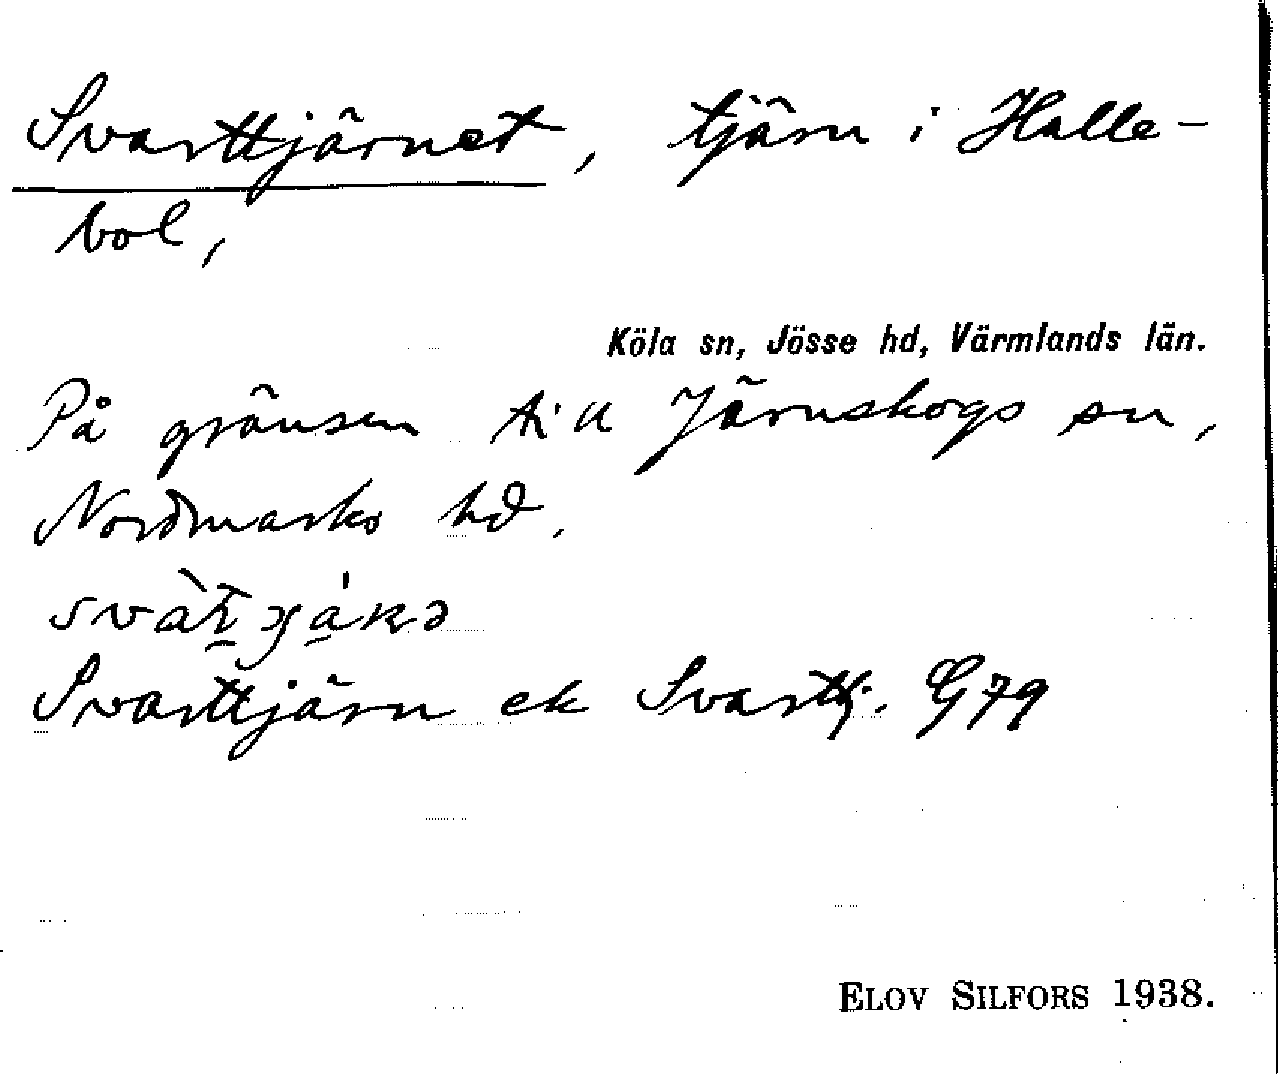 Svarttjärnet, tjärn i Halle-
bol,
Köla sn, Jösse hd, Värmlands län.
På gränsen till Järnskogs sn,
Nordmarks hd.
Svarttjärn ek Svarttj. G79
ELOV SILFORS 1938.